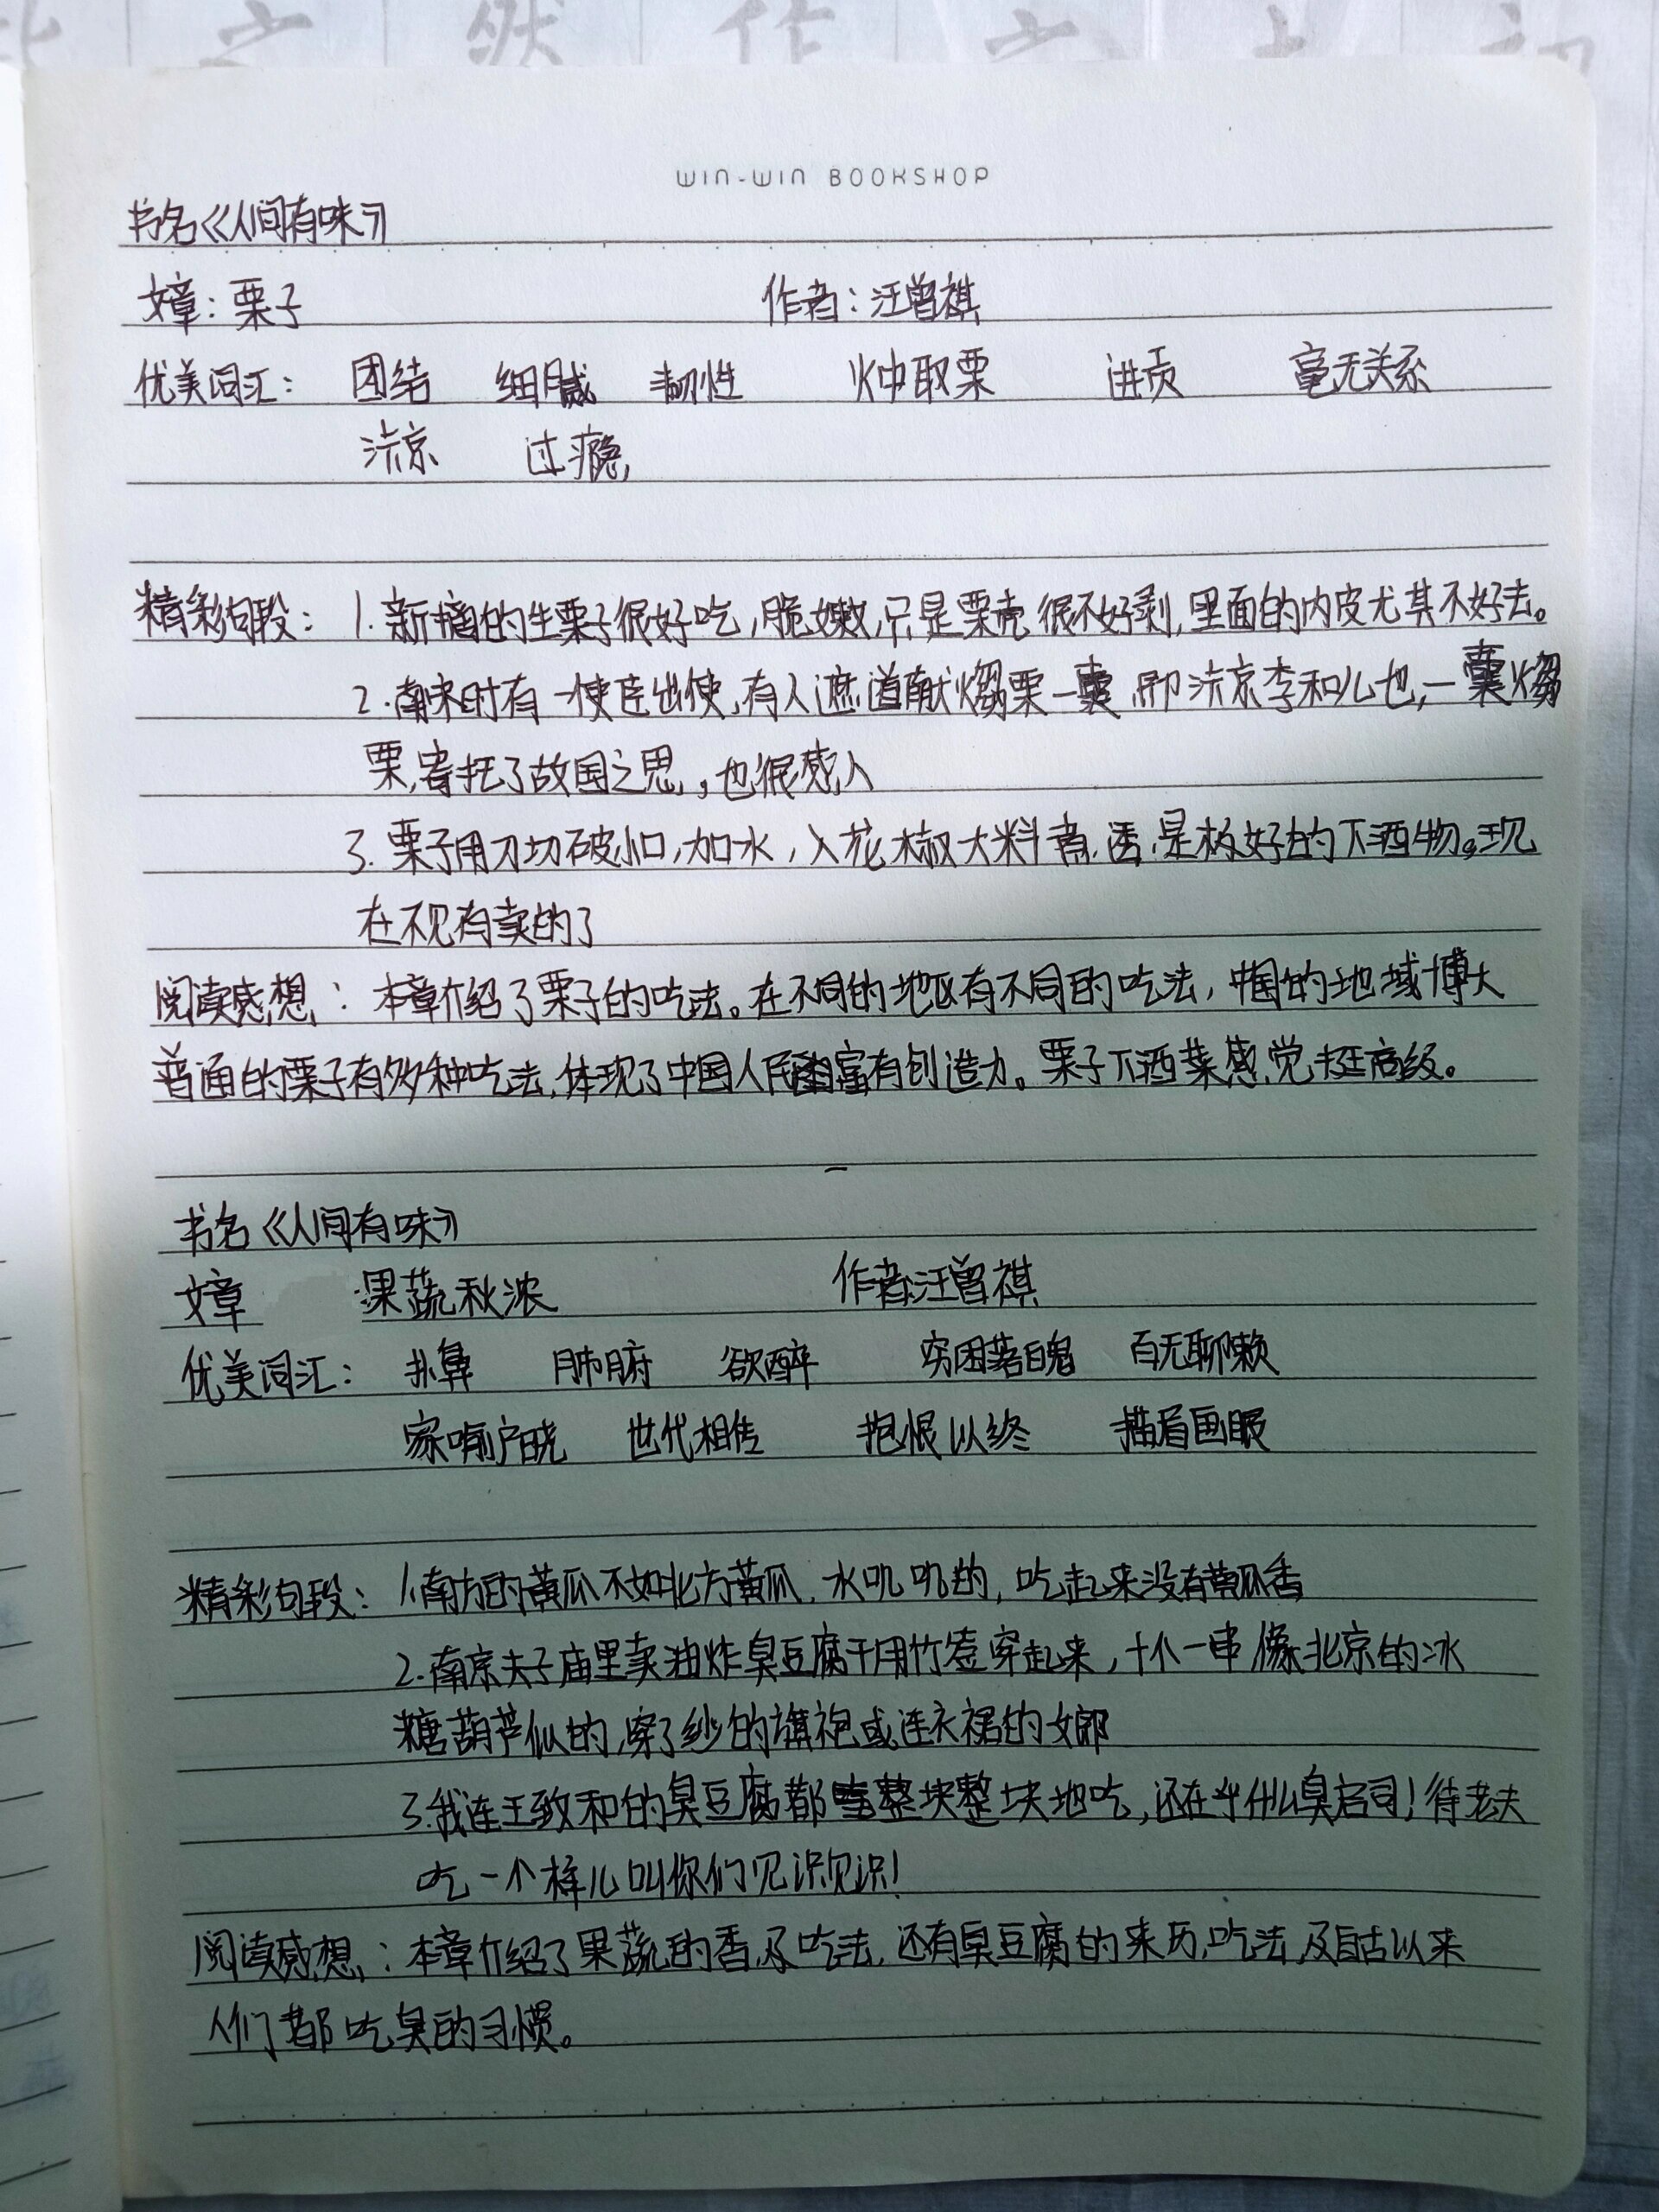 WIN-WIN BOOKSHOP
书名《人间有味》
文章：栗子 作者：汪曾祺
优美词汇： 团结 细腻 韧性 火中取栗 进贡 毫无关系
汴京 过瘾
精彩句段： 1. 新摘的生栗子很好吃，脆嫩，只是栗壳很不好剥，里面的内皮尤其不好去。
2. 南宋时有一使臣出使，有人遮道献煼栗一囊，即汴京李和儿也，一囊煼
栗，寄托了故国之思，也很感人
3. 栗子用刀切破小口，加水，入花椒大料煮透，是极好的下酒物。现
在不见有卖的了
阅读感想： 本章介绍了栗子的吃法。在不同的地区有不同的吃法，中国的地域博大
普通的栗子有多种吃法，体现了中国人民富有创造力。栗子下酒菜感觉挺高级。
书名《人间有味》
文章 果蔬秋浓 作者：汪曾祺
优美词汇： 扑鼻 肺腑 欲醉 穷困落魄 百无聊赖
家喻户晓 世代相传 抱恨以终 描眉画眼
精彩句段： 1. 南方的黄瓜不如北方黄瓜，水叽叽的，吃起来没有黄瓜香
2. 南京夫子庙里卖油炸臭豆腐干用竹签穿起来，十个一串，像北京的冰
糖葫芦似的，穿了纱的旗袍或连衣裙的女郎
3. 我连王致和的臭豆腐都整块整块地吃，还在乎什么臭启司！待老夫
吃一个样儿叫你们见识见识！
阅读感想： 本章介绍了果蔬的香及吃法，还有臭豆腐的来历，吃法，及自古以来
人们都吃臭的习惯。